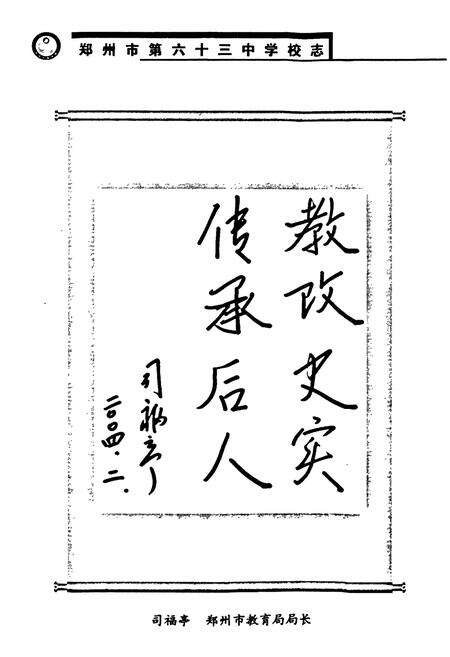 郑州市第六十三中学校志
教改史实
传承后人
司福亭
二〇〇四.二.
司福亭 郑州市教育局局长